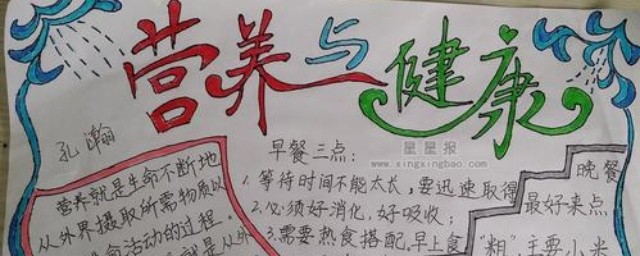 营养与健康
孔瀚
营养就是生命不断地
从外界摄取所需物质以
命活动的过程。
就是从外
早餐三点：
1.等待时间不能太长，要迅速取得
2.必须好消化，好吸收；
3.需要热食搭配，早上食
晚餐
最好来点
“粗”，主要小米
星星报
www.xingxingbao.com